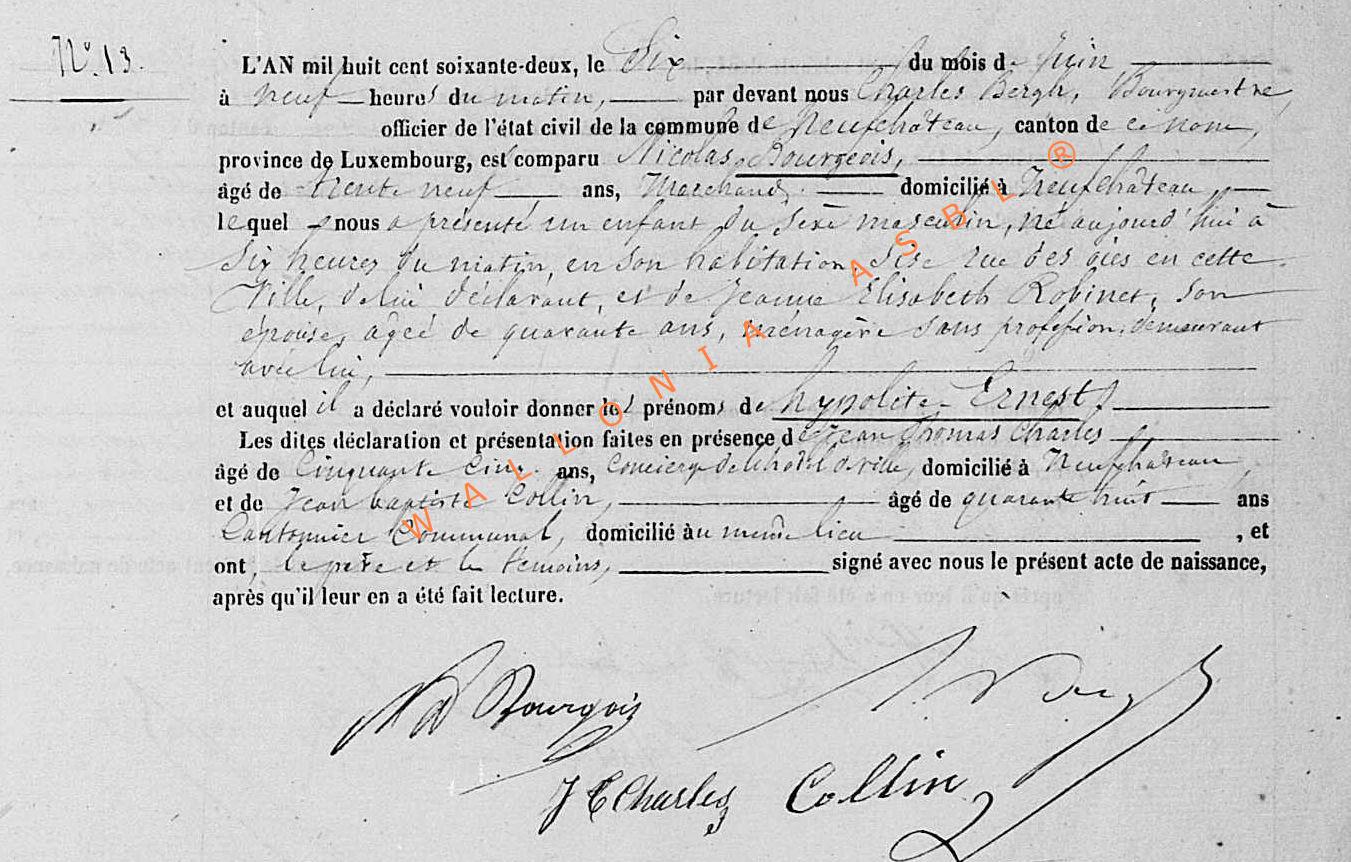 N° 13.
L'AN mil huit cent soixante-deux, le Six du mois de Juin
à neuf heures du matin, par devant nous Charles Bergh, Bourgmestre,
officier de l'état civil de la commune de Neufchateau, canton de ce nom,
province de Luxembourg, est comparu Nicolas Bourgeois,
âgé de trente neuf ans, Marchand domicilié à Neufchâteau,
lequel nous a présenté un enfant du sexe masculin, né aujourd'hui à
six heures du matin, en son habitation, sise rue des oies en cette
Ville, de lui déclarant, et de Jeanne Elisabeth Robinet, son
épouse, agée de quarante ans, ménagère sans profession, demeurant
avec lui,
et auquel il a déclaré vouloir donner les prénoms de hypolite Ernest
Les dites déclaration et présentation faites en présence de Jean Thomas Charles
âgé de Cinquante cinq ans, Concierge de l'hotel de ville, domicilié à Neufchateau,
et de Jean baptiste Collin, âgé de quarante huit ans
Cantonnier Communal, domicilié au même lieu , et
ont, le père et les témoins, signé avec nous le présent acte de naissance,
après qu'il leur en a été fait lecture.
WALLONIA ASBL ®
Bourgois
J T Charles Collin